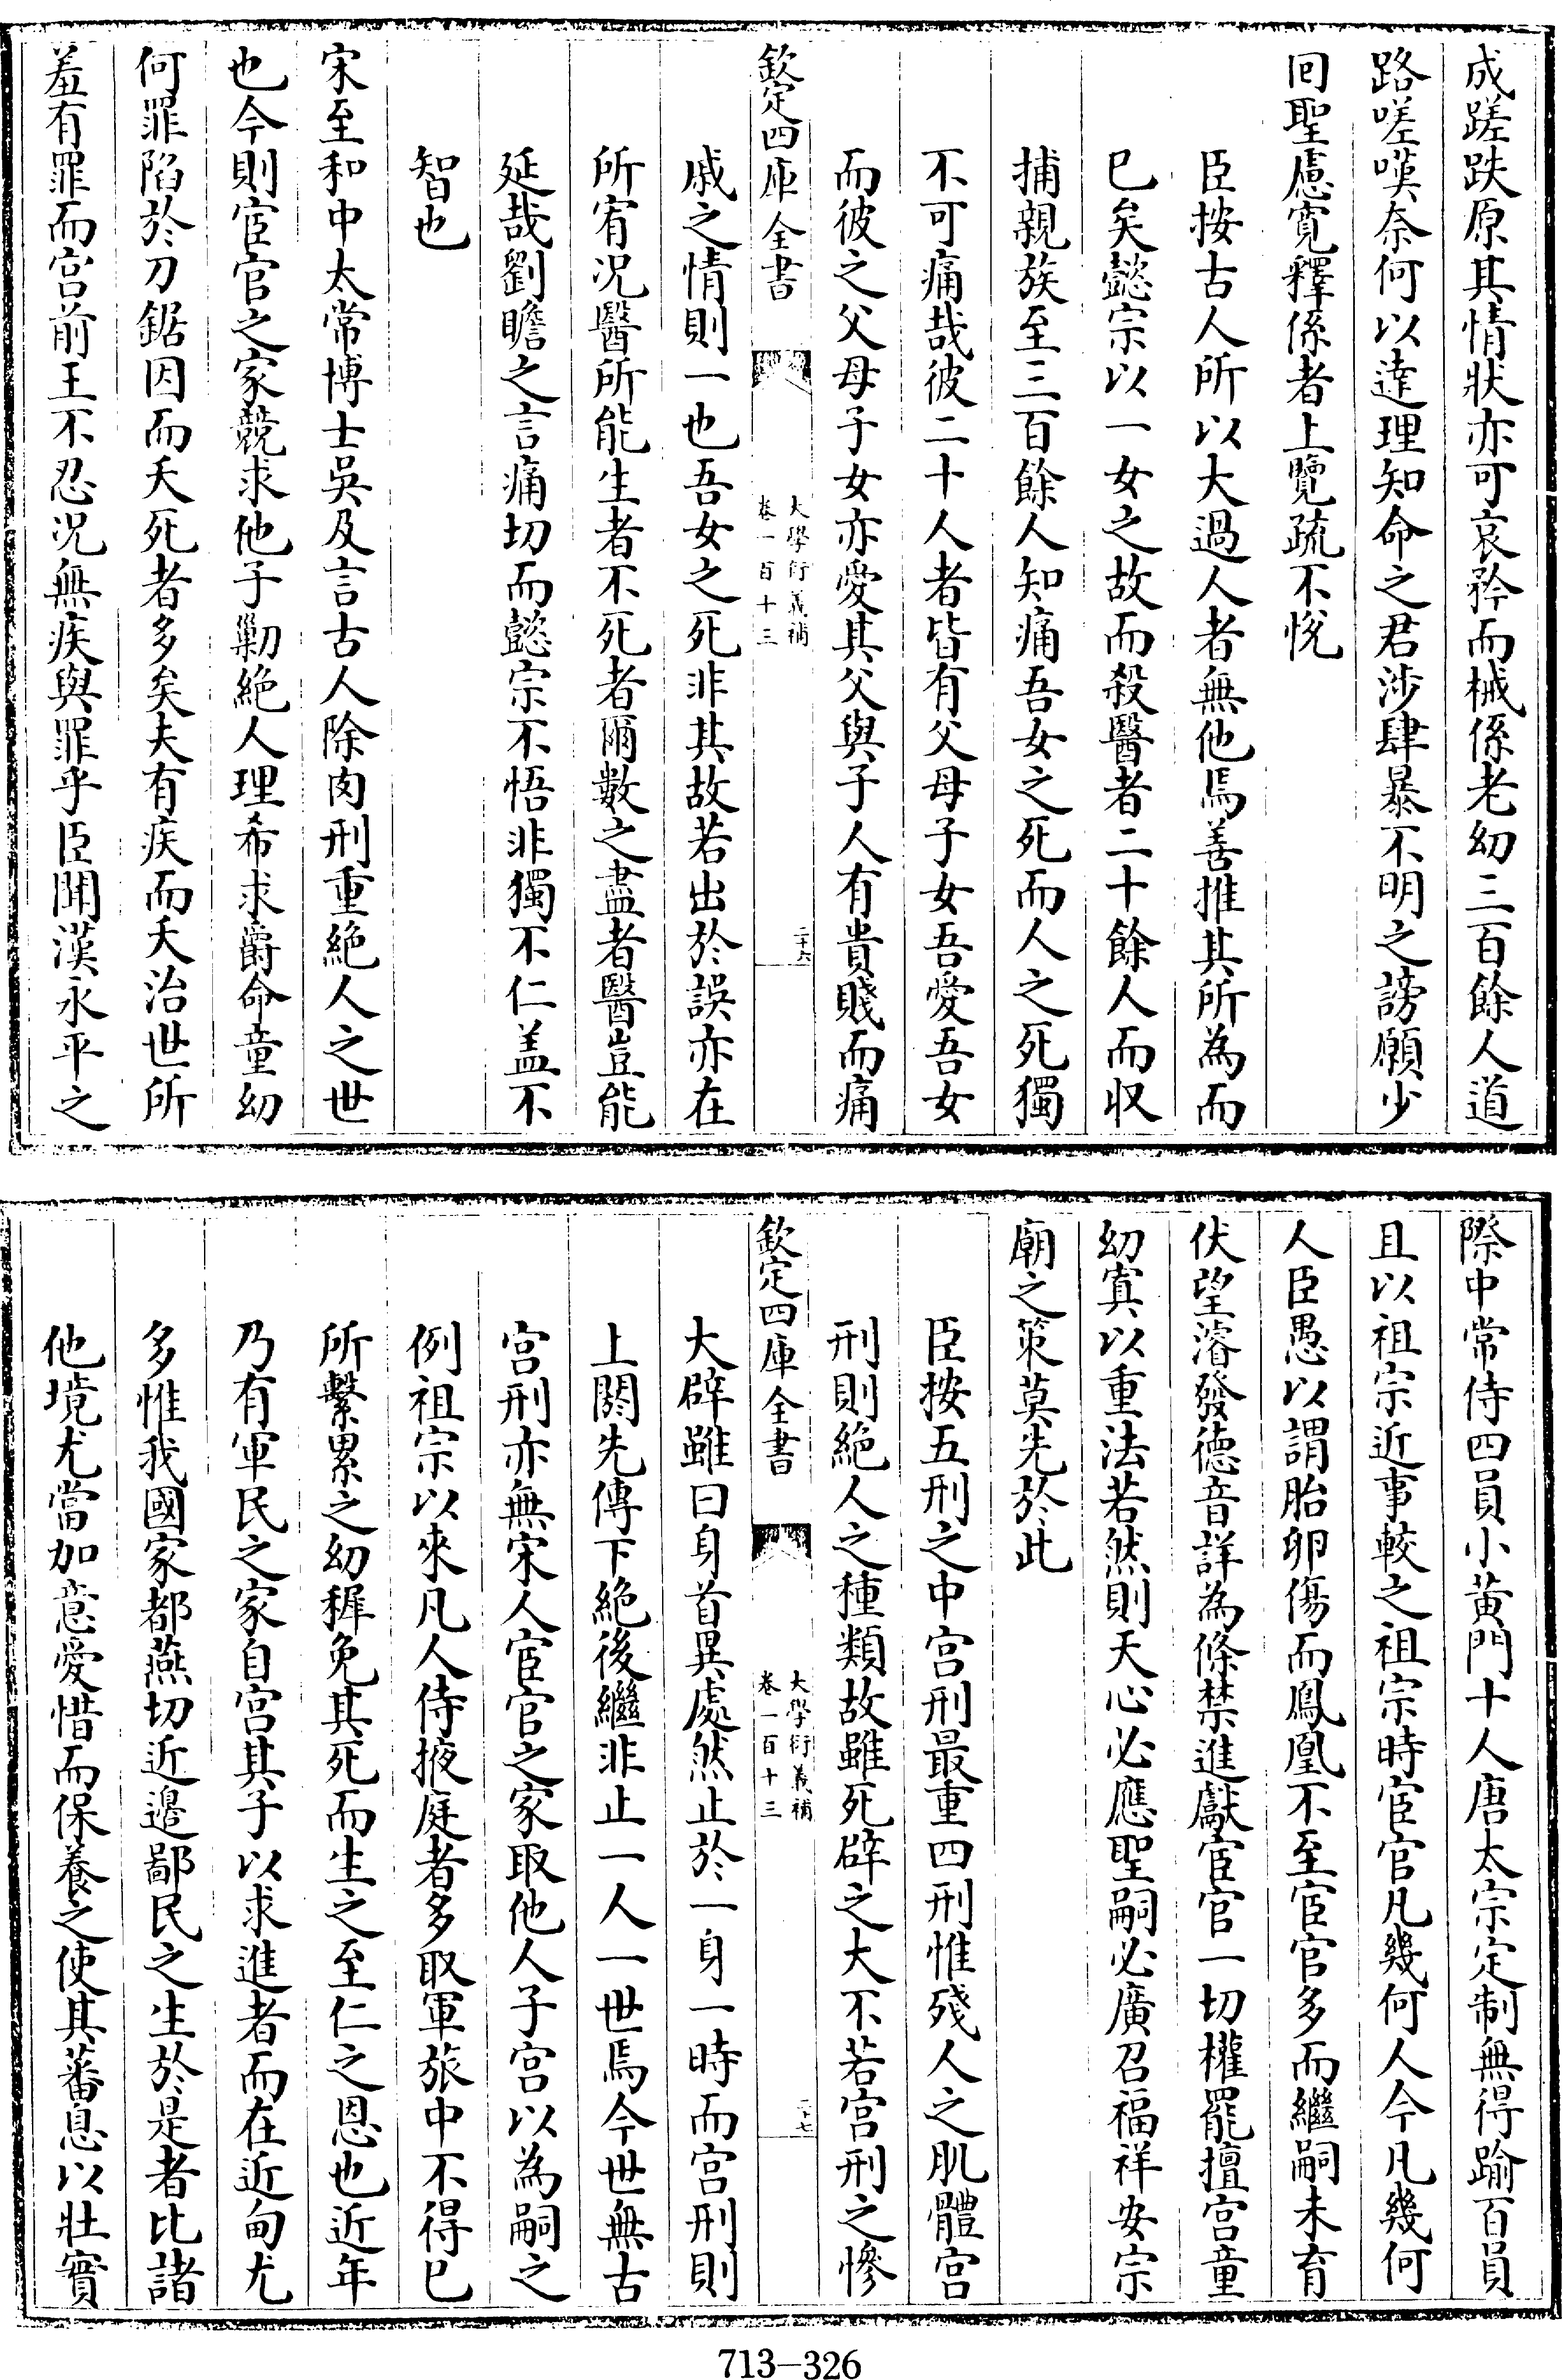 成蹉跌原其情狀亦可哀矜而械係老幼三百餘人道
路嗟嘆奈何以達理知命之君涉肆暴不明之謗願少
回聖慮寛釋係者上覽疏不悅
臣按古人所以大過人者無他焉善推其所為而
已矣懿宗以一女之故而殺醫者二十餘人而収
捕親族至三百餘人知痛吾女之死而人之死獨
不可痛哉彼二十人者皆有父母子女吾愛吾女
而彼之父母子女亦愛其父與子人有貴賤而痛
欽定四庫全書
大學衍義補
卷一百十三
二十六
戚之情則一也吾女之死非其故若出於誤亦在
所宥况醫所能生者不死者爾數之盡者醫豈能
延哉劉瞻之言痛切而懿宗不悟非獨不仁盖不
智也
宋至和中太常博士吳及言古人除肉刑重絶人之世
也今則宦官之家競求他子勦絶人理希求爵命童幼
何罪陷於刀鋸因而夭死者多矣夫有疾而夭治世所
羞有罪而宫前王不忍况無疾與罪乎臣聞漢永平之
際中常侍四員小黃門十人唐太宗定制無得踰百員
且以祖宗近事較之祖宗時宦官凡幾何人今凡幾何
人臣愚以謂胎卵傷而鳳凰不至宦官多而繼嗣未育
伏望濬發德音詳為條禁進獻宦官一切權罷擅宫童
幼寘以重法若然則天心必應聖嗣必廣召福祥安宗
廟之策莫先於此
臣按五刑之中宫刑最重四刑惟殘人之肌體宫
刑則絶人之種類故雖死辟之大不若宫刑之慘
欽定四庫全書
大學衍義補
卷一百十三
二十七
大辟雖曰身首異處然止於一身一時而宫刑則
上闕先傳下絶後繼非止一人一世焉今世無古
宫刑亦無宋人宦官之家取他人子宫以為嗣之
例祖宗以來凡人侍掖庭者多取軍旅中不得已
所繫累之幼穉免其死而生之至仁之恩也近年
乃有軍民之家自宫其子以求進者而在近甸尤
多惟我國家都燕切近邊鄙民之生於是者比諸
他境尤當加意愛惜而保養之使其蕃息以壯實
713-326